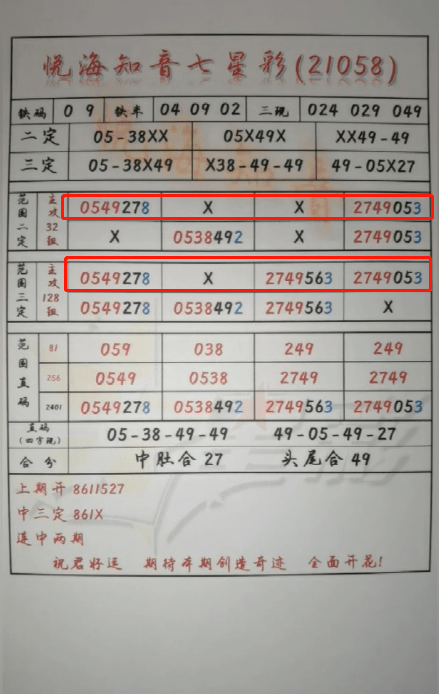 悦海知音七星彩(21058)
铁码 0 9 铁率 04 09 02 三现 024 029 049
二定 05-38XX 05X49X XX49-49
三定 05-38X49 X38-49-49 49-05X27
范围二定 主攻 0549278 X X 2749053
32组 X 0538492 X 2749053
范围三定 主攻 0549278 X 2749563 2749053
128组 0549278 0538492 2749563 X
范围直码 81 059 038 249 249
256 0549 0538 2749 2749
2401 0549278 0538492 2749563 2749053
直码(四字现) 05-38-49-49 49-05-49-27
合分 中肚合27 头尾合49
上期开8611527
中三定861X
连中两期
祝君好运 期待本期创造奇迹 全面开花!